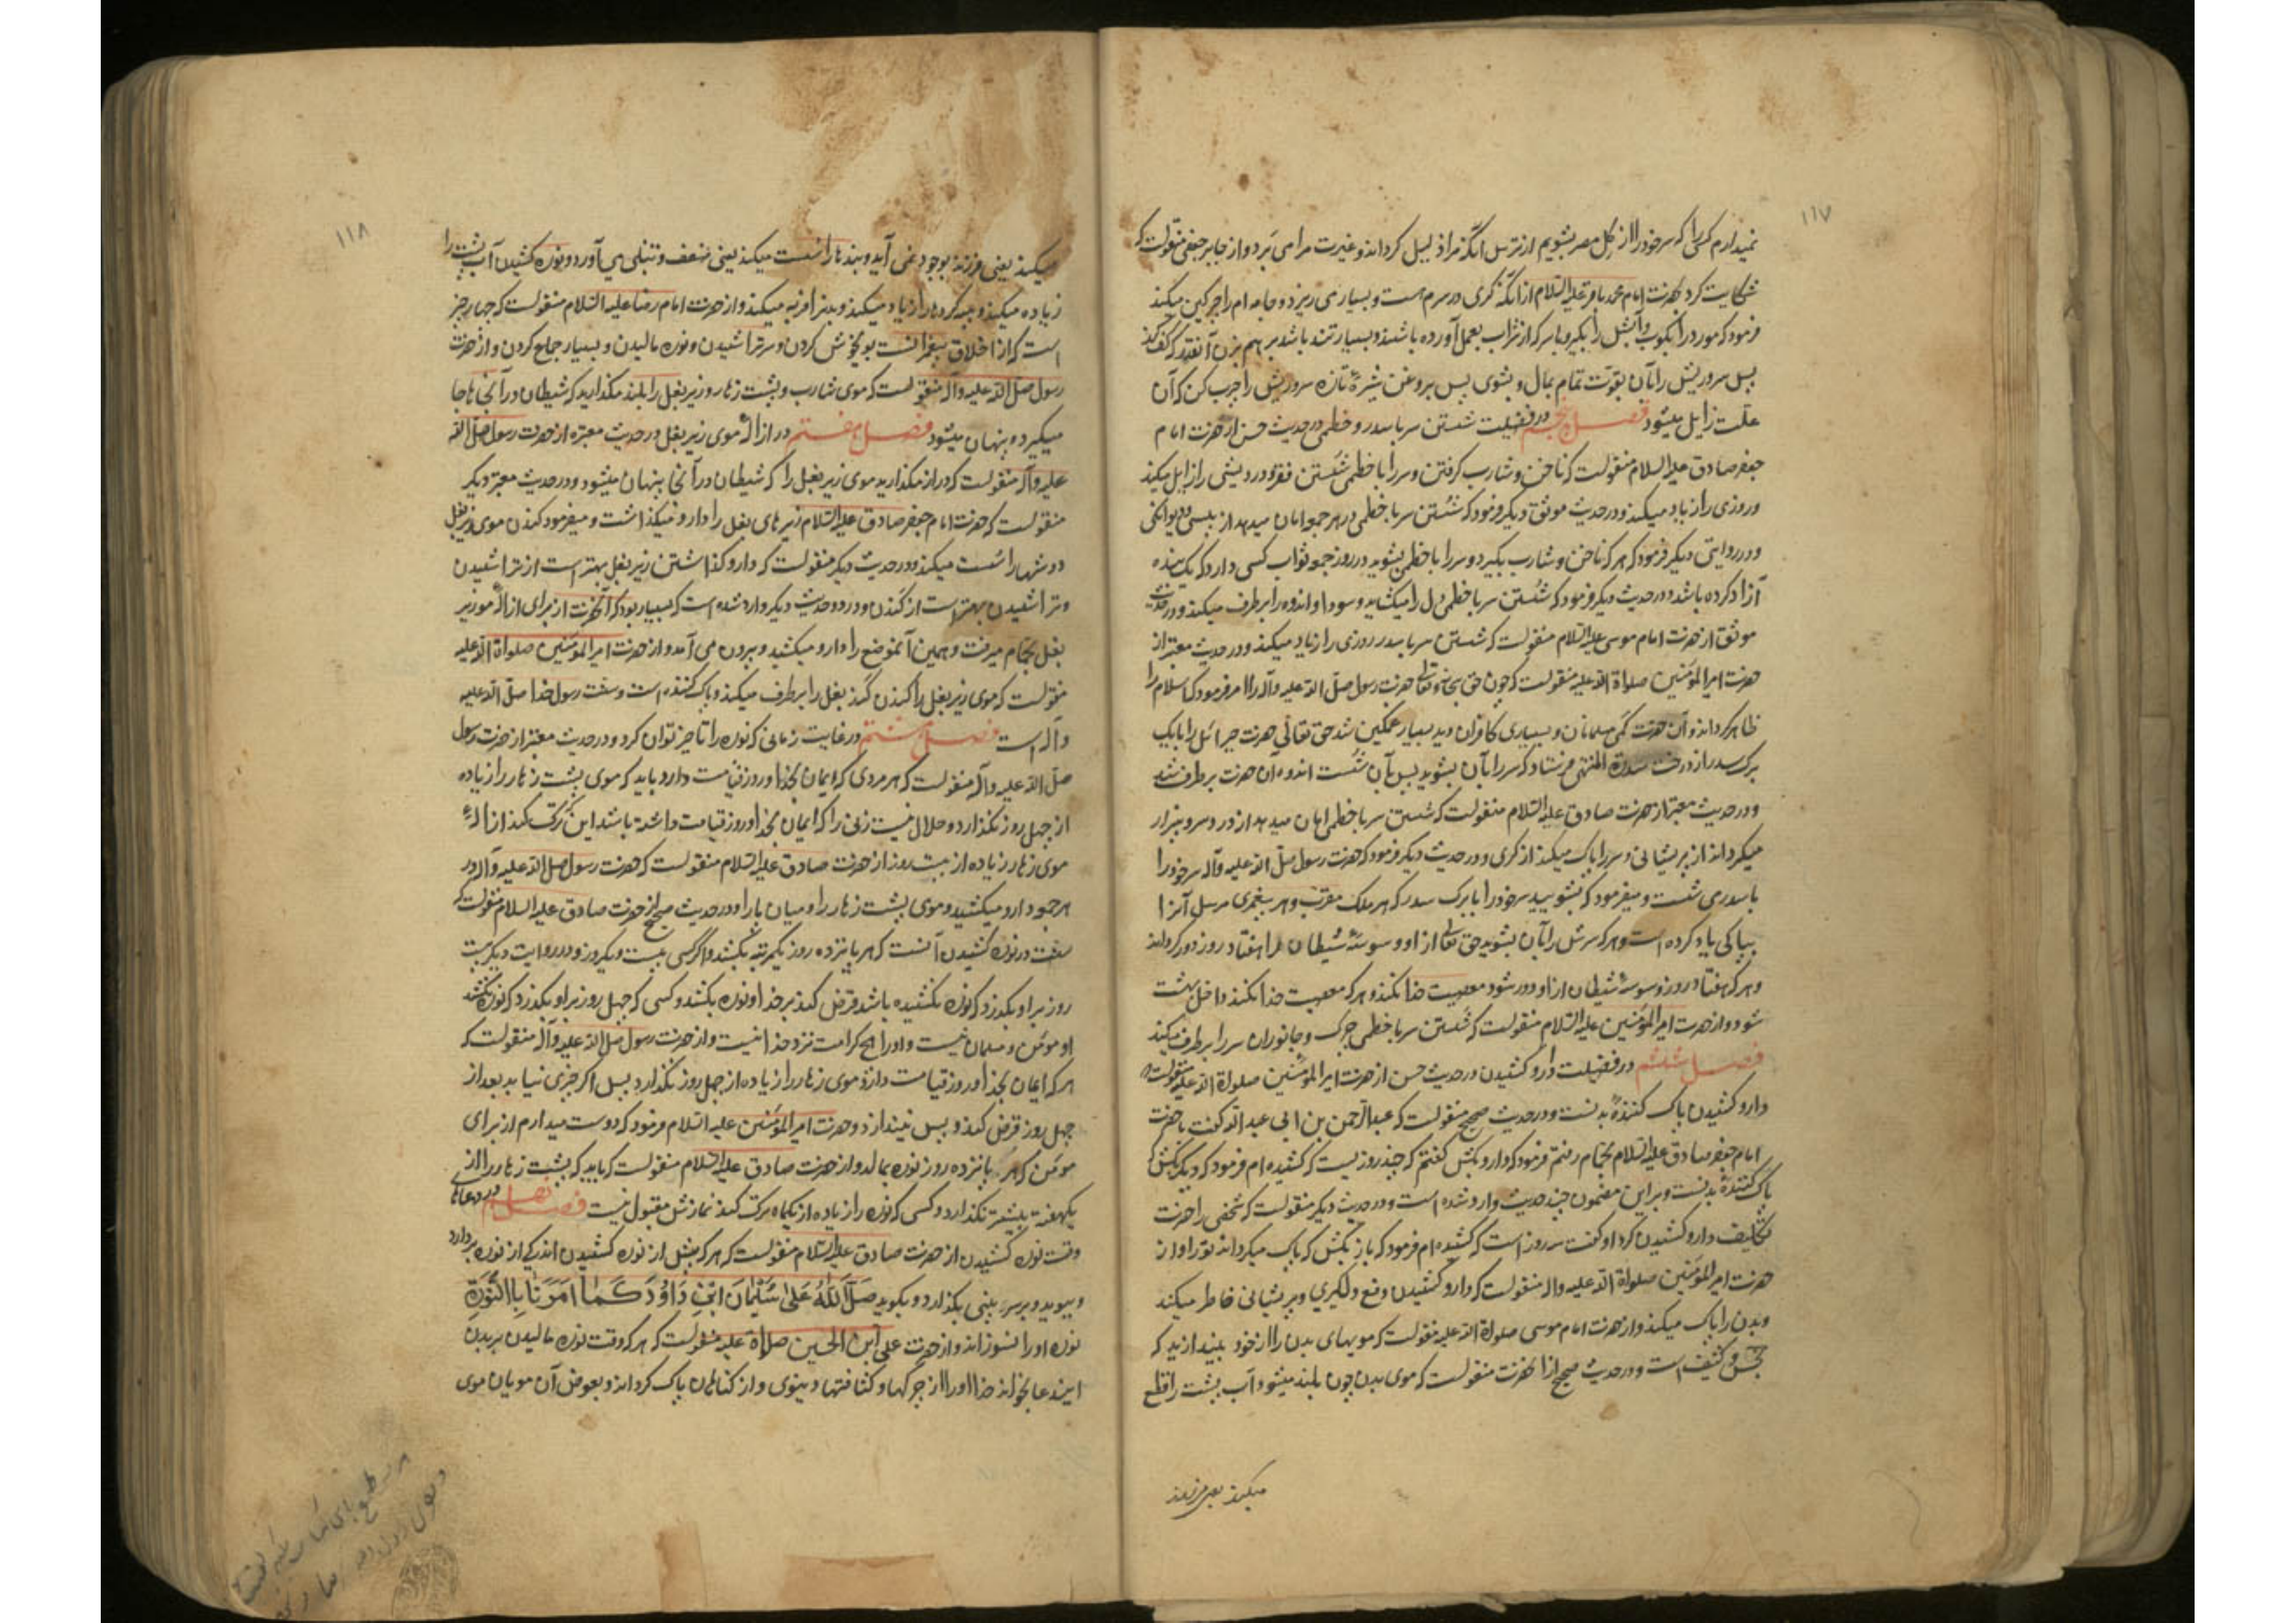 ۱۱۷
نمیدارم کسی را که سر خود را از کل مصر بشویم از ترس آنکه مرا ذلیل کرداند و غیرت مرا می برد و از جابر جعفی منقولست که
شکایت کرد بحضرت امام محمد باقر علیه السلام از آنکه کری در سرم هست و بسیار می ریزد و جامه ام را چرکین میکند
فرمود که مورد را بکوب و آبش را بکیر و با سرکه از شراب بعمل آورده باشند و بسیار تند باشد بر هم بزن آنقدر که کف کند
پس سر و ریش را بآن بقوت تمام بمال و بشوی پس بروغن شیرهٔ تازه سر و ریش را چرب کن که آن
علت زایل میشود فصل پنجم در فضیلت شستن سر با سدر و خطمی در حدیث حسن از حضرت امام
جعفر صادق علیه السلام منقولست که ناخن و شارب کرفتن و سر را با خطمی شستن فقر و درویشی را زایل میکند
و روزی را زیاد میکند و در حدیث موثق دیکر فرمود که شستن سر با خطمی در هر جمعه امان میدهد از پیسی و دیوانکی
و در روایتی دیکر فرمود که هر که ناخن و شارب بکیرد و سر را با خطمی بشوید در روز جمعه ثواب کسی دارد که یک بنده
آزاد کرده باشد و در حدیث دیکر فرمود که شستن سر با خطمی دل را میکشاید و سودا و اندوه را بر طرف میکند و در حدیث
موثق از حضرت امام موسی علیه السلام منقولست که شستن سر با سدر روزی را زیاد میکند و در حدیث معتبر از
حضرت امیرالمؤمنین صلواة الله علیه منقولست که چون حق سبحانه و تعالی حضرت رسول صلی الله علیه وآله را امر فرمود که اسلام را
ظاهر کرداند و آن حضرت کمی مسلمانان و بسیاری کافران دید بسیار غمکین شد حق تعالی حضرت جبرائیل را با یک
برک سدر از درخت سدرة المنتهی فرستاد که سر را بآن بشوید پس بآن شست اندوه آن حضرت بر طرف شد
و در حدیث معتبر از حضرت صادق علیه السلام منقولست که شستن سر با خطمی امان میدهد از درد سر و بیزار
میکرداند از پریشانی و سر را پاک میکند از کری و در حدیث دیکر فرمود که حضرت رسول صلی الله علیه وآله سر خود را
با سدر می شست و میفرمود که بشویید سر خود را با برک سدر که هر ملک مقرب و هر پیغمبری مرسل آنرا
بپاکی یاد کرده است و هر که سرش را بآن بشوید حق تعالی از او وسوسهٔ شیطان را هفتاد روز دور کرداند
و هر که هفتاد روز وسوسهٔ شیطان از او دور شود معصیت خدا نکند و هر که معصیت خدا نکند داخل بهشت
شود و از حضرت امیرالمؤمنین علیه السلام منقولست که شستن سر با خطمی چرک و جانوران سر را بر طرف میکند
فصل ششم در فضیلت دارو کشیدن در حدیث حسن از حضرت امیرالمؤمنین صلواة الله علیه منقولست که
دارو کشیدن پاک کنندهٔ بدنست و در حدیث صحیح منقولست که عبدالرحمن بن ابی عبدالله کفت با حضرت
امام جعفر صادق علیه السلام بحمام رفتم فرمود که دارو بکش کفتم که چند روز یست که کشیده ام فرمود که دیکر بکش که
پاک کنندهٔ بدنست و بر این مضمون چند حدیث وارد شده است و در حدیث دیکر منقولست که شخصی را حضرت
تکلیف دارو کشیدن کرد او کفت سه روز است که کشیده ام فرمود که باز بکش که پاک میکرداند تو را و از
حضرت امیرالمؤمنین صلواة الله علیه واله منقولست که دارو کشیدن دفع دلکیری و پریشانی خاطر میکند
و بدن را پاک میکند و از حضرت امام موسی صلواة الله علیه منقولست که مویهای بدن را از خود بیندازید که
نجس و کثیف است و در حدیث صحیح از آنحضرت منقولست که موی بدن چون بلند میشود آب پشت را قطع
میکند یعنی فرزند
۱۱۸
میکند یعنی فرزند بوجود نمی آید و بندها را سست میکند یعنی ضعف و تنبلی می آورد و نوره کشیدن آب پشت را
زیاده میکند و پیه کرده ها را زیاد میکند و بدن را فربه میکند و از حضرت امام رضا علیه السلام منقولست که چهار چیز
است که از اخلاق پیغمبرانست بوی خوش کردن و سر تراشیدن و نوره مالیدن و بسیار جماع کردن و از حضرت
رسول صلی الله علیه وآله منقولست که موی شارب و پشت زهار و زیر بغل را بلند مکذارید که شیطان در آنجاها جا
میکیرد و پنهان میشود فصل هفتم در ازالهٔ موی زیر بغل در حدیث معتبره از حضرت رسول صلی الله
علیه وآله منقولست که دراز مکذارید موی زیر بغل را که شیطان در آنجا پنهان میشود و در حدیث معتبر دیکر
منقولست که حضرت امام جعفر صادق علیه السلام زیر های بغل را دارو میکذاشت و میفرمود کندن موی زیر بغل
دوشها را سست میکند و در حدیث دیکر منقولست که دارو کذاشتن زیر بغل بهتر است از تراشیدن
و تراشیدن بهتر است از کندن و در دو حدیث دیکر وارد شده است که بسیار بود که آنحضرت از برای ازالهٔ مو زیر
بغل بحمام میرفت و همین آنموضع را دارو میکشید و بیرون می آمد و از حضرت امیرالمؤمنین صلواة الله علیه
منقولست که موی زیر بغل را کندن کند بغل را بر طرف میکند و پاک کننده است و سنت رسول خدا صلی الله علیه
وآله است فصل هشتم در غایت زمانی که نوره را تاخیر توان کرد و در حدیث معتبر از حضرت رسول
صلی الله علیه وآله منقولست که هر مردی که ایمان بخدا و روز قیامت دارد باید که موی پشت زهار را زیاده
از چهل روز نکذارد و حلال نیست زنی را که ایمان بخدا و روز قیامت داشته باشد این که ترک کند ازالهٔ
موی زهار زیاده از بیست روز از حضرت صادق علیه السلام منقولست که حضرت رسول صلی الله علیه وآله در
هر جمعه دارو میکشید و موی پشت زهار را و میان پا را و در حدیث صحیح از حضرت صادق علیه السلام منقولست که
سنت در نوره کشیدن آنست که هر پانزده روز یکمرتبه بکشند و اکر کسی بیست و یکروز و در روایت دیکر بیست
روز بر او بکذرد که نوره نکشیده باشد قرض کند بر خدا و نوره بکشد و کسی که چهل روز بر او بکذرد که نوره نکشد
او مؤمن و مسلمان نیست و او را هیچ کرامت نزد خدا نیست و از حضرت رسول صلی الله علیه وآله منقولست که
هر که ایمان بخدا و روز قیامت دارد موی زهار را زیاده از چهل روز نکذارد پس اکر چیزی نیابد بعد از
چهل روز قرض کند و پس نیندازد و حضرت امیرالمؤمنین علیه السلام فرمود که دوست میدارم از برای
مؤمن که هر پانزده روز نوره بمالد و از حضرت صادق علیه السلام منقولست که باید که پشت زهار را از
یکهفته بیشتر نکذارد و کسی که نوره را زیاده از یکماه ترک کند نمازش مقبول نیست فصل نهم در دعاهای
وقت نوره کشیدن از حضرت صادق علیه السلام منقولست که هر که پیش از نوره کشیدن اندکی از نوره بردارد
و ببوید و بر سر بینی بکذارد و بکوید صَلَّى اللّٰهُ عَلىٰ سُلَيْمَانَ ابْنِ دَاوُدَ كَمَا اَمَرَنَا بِاالنُّورَةِ
نوره او را نسوزاند و از حضرت علی ابن الحسین صلواة علیه منقولست که هر که وقت نوره مالیدن بر بدن
ایندعا بخواند خدا او را از چرکها و کثافتها دنیوی و از کناهان پاک کرداند و بعوض آن مویان موی